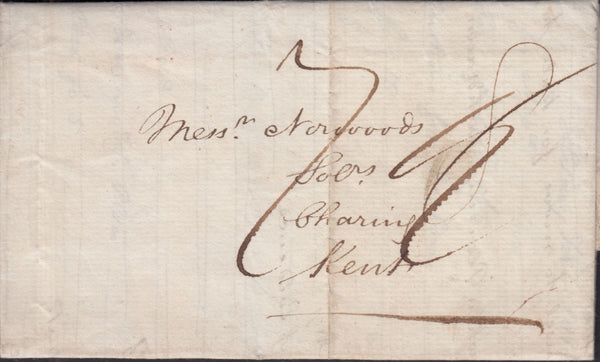 Mess.rs Norwoods
Solrs
Charing
Kent